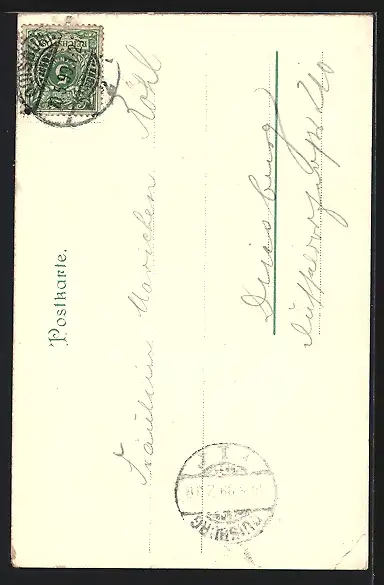 Postkarte.
Fräulein Mariechen Röhl
Duisburg
Düsseldorferstr. 210
DUISBURG